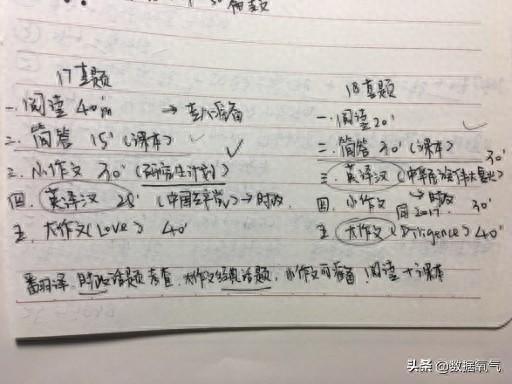 17真题
一. 阅读 40in → 要准备
二. 简答 15' (课本)
三. 小作文 30' (研究生计划)
四. 英译汉 25' (中国共产党) → 时政.
五. 大作文 (Love) 40'
18真题
一. 阅读 20'
二. 简答 30' (课本)
三. 英译汉 (中华民族伟大复兴) 30'
→ 时政
四. 小作文 同2017. 30'
五. 大作文 (Diligence) 40'
翻译, 时政话题考查. 大作文经典话题. 小作文可准备. 阅读+课本
头条 @数据氧气